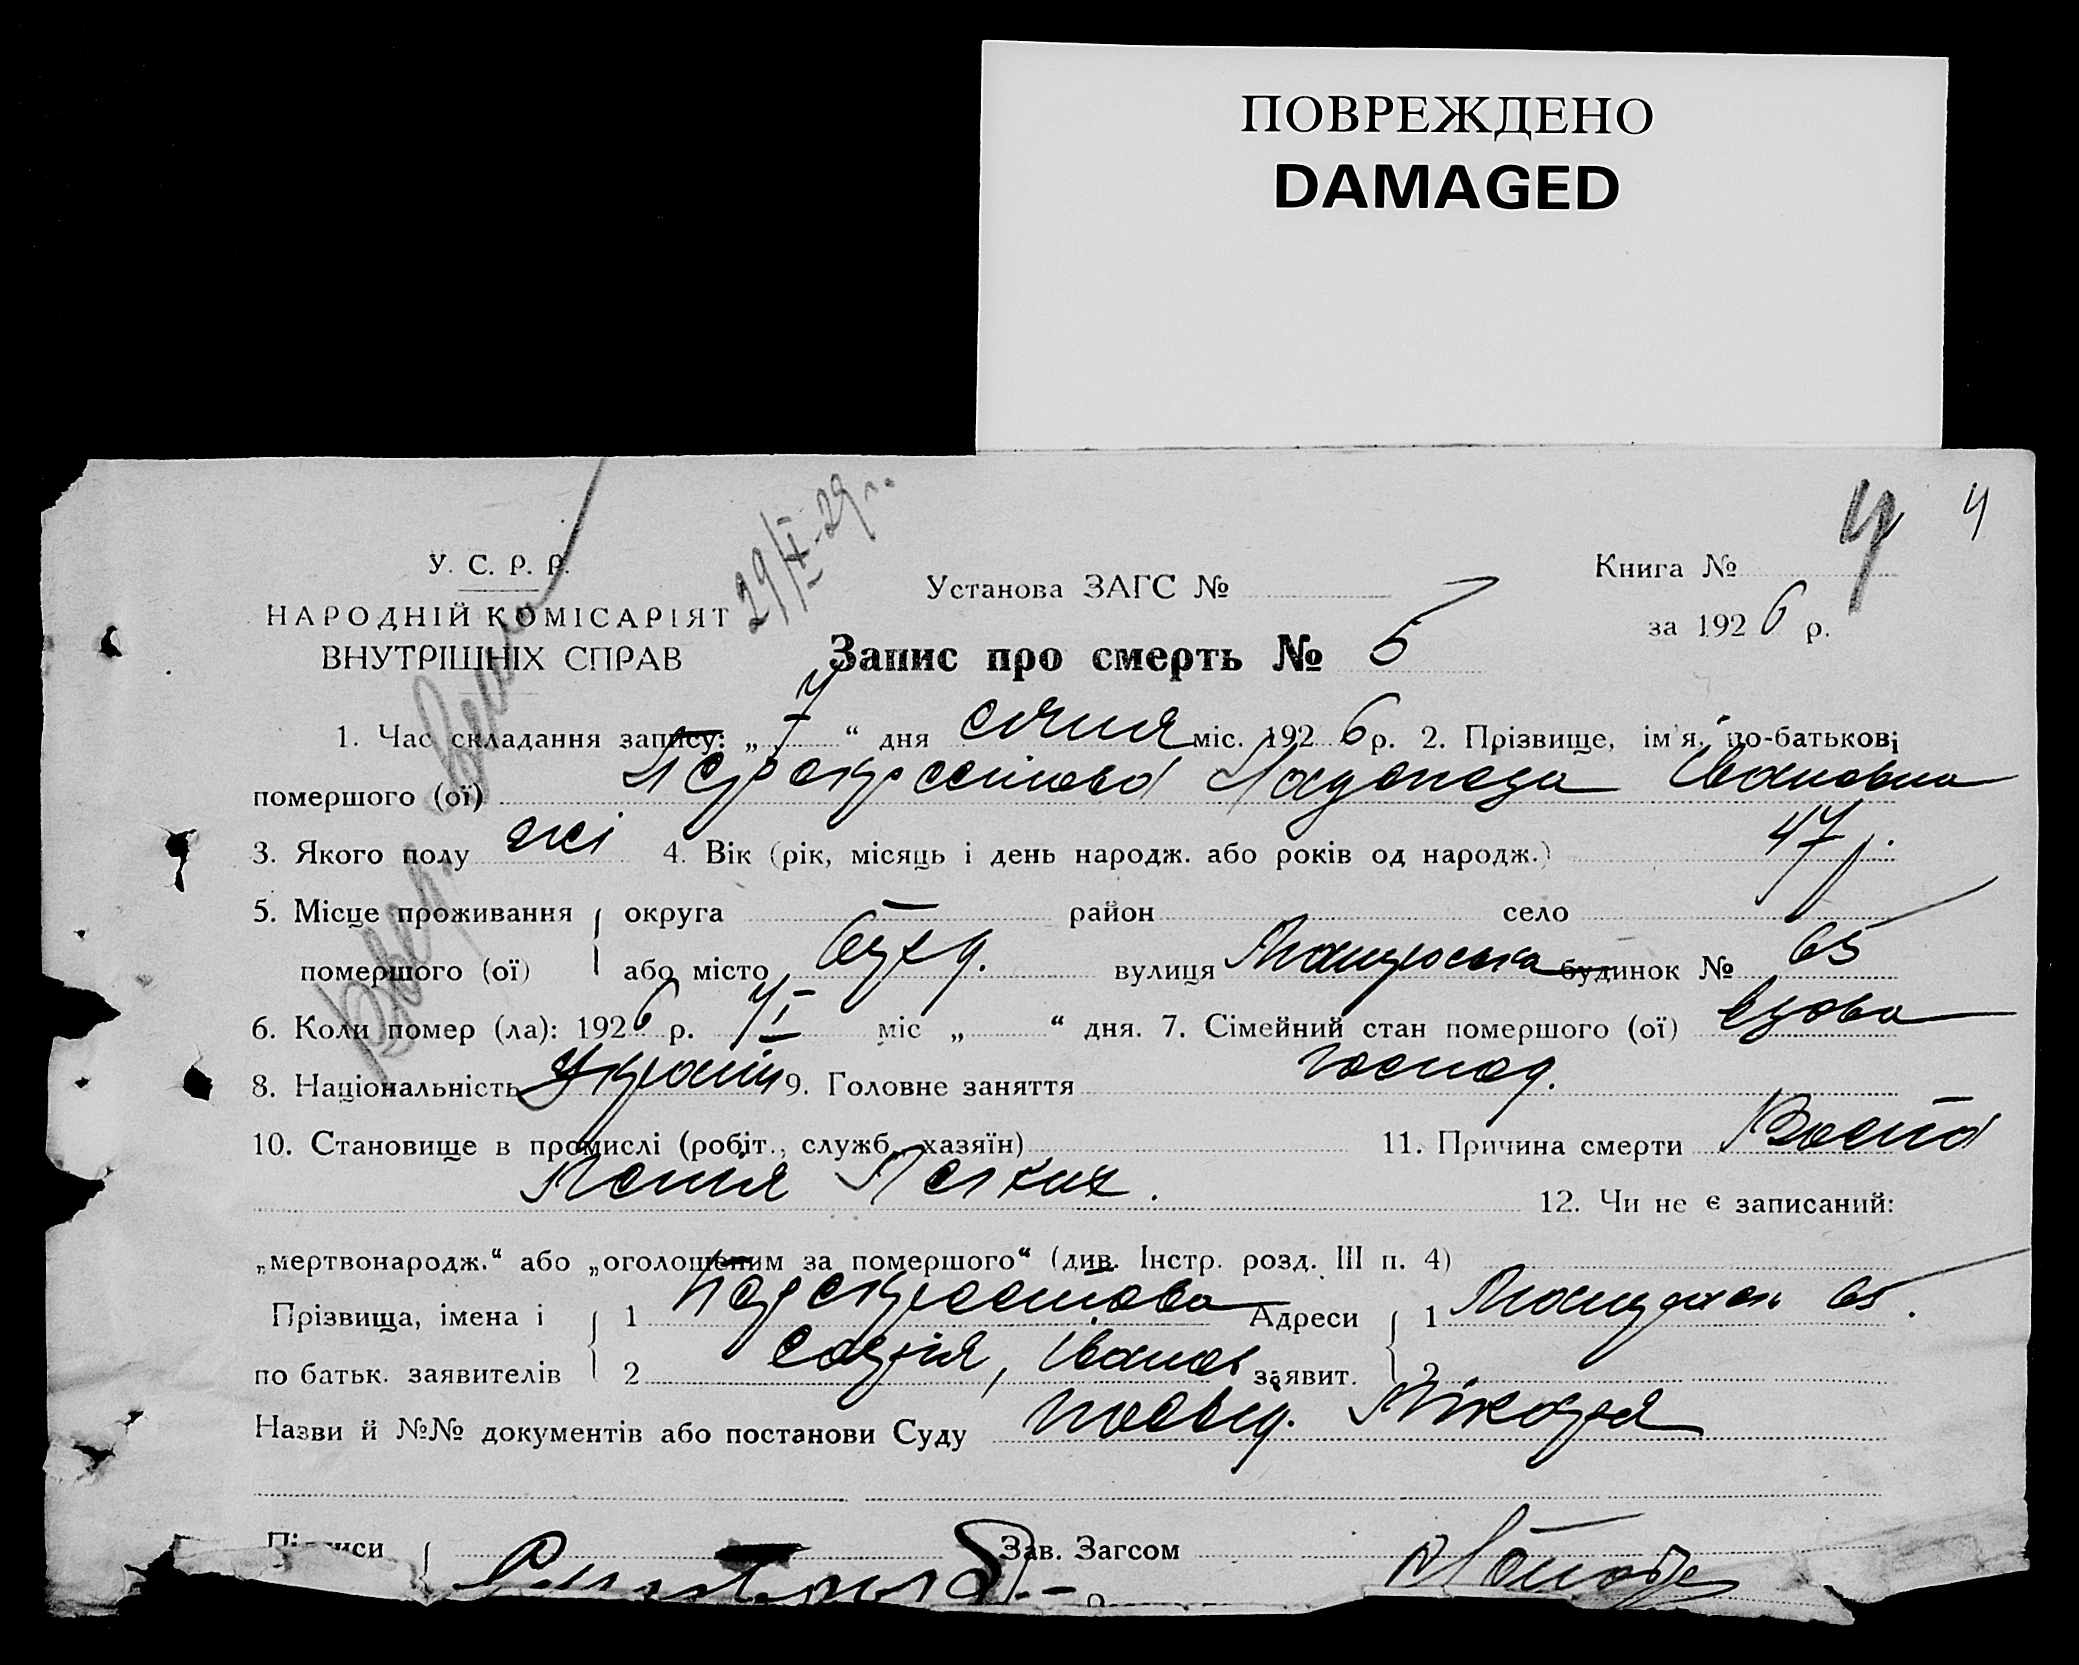 ПОВРЕЖДЕНО
DAMAGED
4 4
У. С. Р. Р.
НАРОДНІЙ КОМІСАРІЯТ
ВНУТРІШНІХ СПРАВ
29/X-29 г.
Установа ЗАГС №
Книга №
за 1926 р.
Запис про смерть № 5
1. Час складання запису: „ 7 “ дня січня міс. 1926 р. 2. Прізвище, ім'я, по-батькові
помершого (ої) Перехрестова Надежда Івановна
3. Якого полу жі 4. Вік (рік, місяць і день народж. або років од народж.) 47 р.
5. Місце проживання округа район село
помершого (ої) або місто вулиця будинок № 65
6. Коли помер (ла): 1926 р. 7/I міс „ “ дня. 7. Сімейний стан помершого (ої) вдова
8. Національність Україн 9. Головне заняття господ.
10. Становище в промислі (робіт., служб., хазяїн) 11. Причина смерти
Легких.
12. Чи не є записаний:
„мертвонародж.“ або „оголошеним за помершого“ (див. Інстр. розд. III п. 4)
Прізвища, імена і 1 Перехрестова Адреси 1 65.
по батьк. заявителів 2 Іванов заявит. 2
Назви й №№ документів або постанови Суду посвід.
Підписи Зав. Загсом